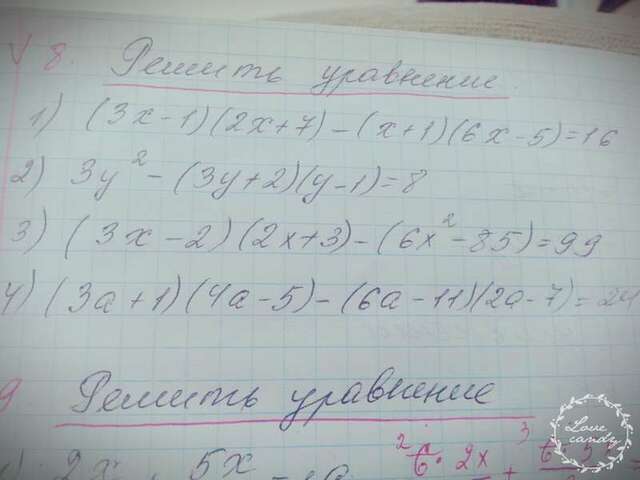 V 8. Решить уравнение.
1) (3x-1)(2x+7)-(x+1)(6x-5)=16
2) 3y²-(3y+2)(y-1)=8
3) (3x-2)(2x+3)-(6x²-85)=99
4) (3a+1)(4a-5)-(6a-11)(2a-7)=24
9 Решить уравнение
2x 5x
2 6·2x + 3
Love candy